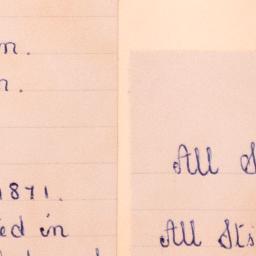 m.
n.
1871.
ed in
All S
All Sts